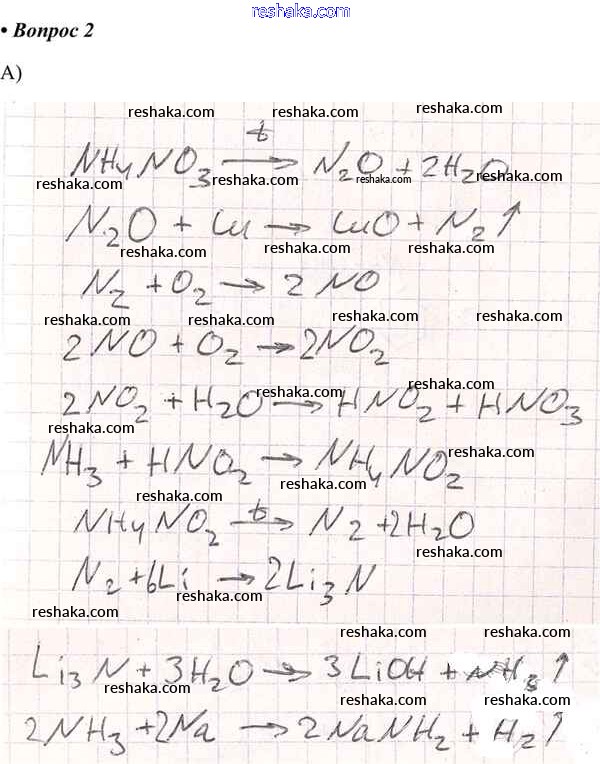 reshaka.com
• Вопрос 2
А)
reshaka.com reshaka.com reshaka.com
NH4NO3 —t→ N2O + 2H2O
reshaka.com reshaka.com reshaka.com
N2O + Cu → CuO + N2↑
reshaka.com reshaka.com reshaka.com
N2 + O2 → 2NO
reshaka.com reshaka.com reshaka.com reshaka.com
2NO + O2 → 2NO2
reshaka.com reshaka.com
2NO2 + H2O → HNO2 + HNO3
reshaka.com reshaka.com
NH3 + HNO2 → NH4NO2
reshaka.com reshaka.com
NH4NO2 —t→ N2 + 2H2O
reshaka.com
N2 + 6Li → 2Li3N
reshaka.com reshaka.com
reshaka.com reshaka.com
Li3N + 3H2O → 3LiOH + NH3↑
reshaka.com reshaka.com reshaka.com
2NH3 + 2Na → 2NaNH2 + H2↑